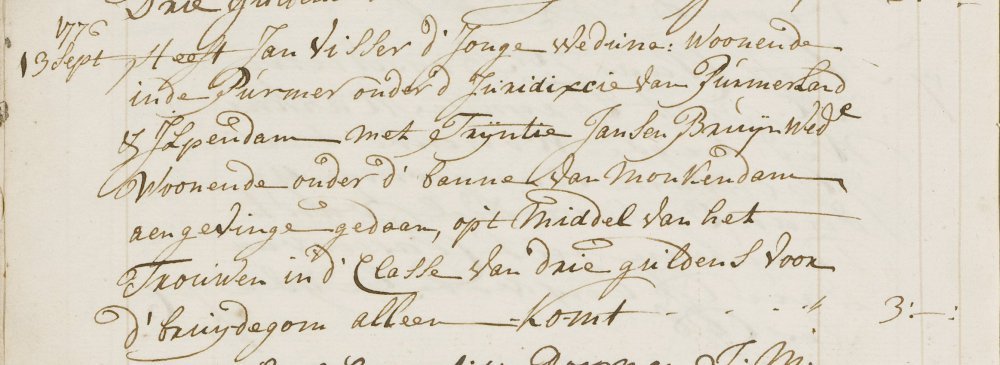 Drie gulden
1776
13 Sept Heeft Jan Visser d' Jonge Weduna: Woonende
inde Purmer onder d Juridixcie van Purmerland
& Ilpendam met Trijntie Jansen Bruijn Wed^e
Woonende onder d' banne van Monkendam
aengevinge gedaan, op't Middel van het
Trouwen in d' Classe van drie guldens voor
d' bruijdegom alleen komt - - - " 3:—: